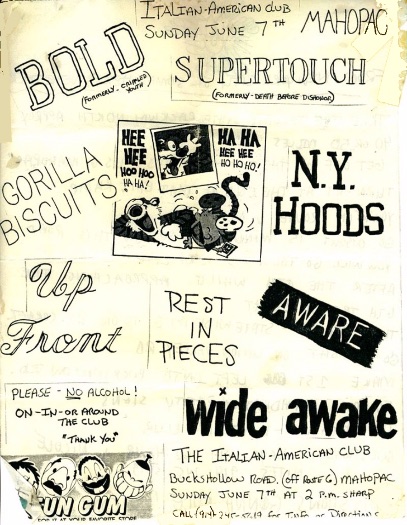 ITALIAN-AMERICAN CLUB
SUNDAY JUNE 7TH
MAHOPAC
BOLD
(FORMERLY - CRIPPLED YOUTH)
SUPERTOUCH
(FORMERLY - DEATH BEFORE DISHONOR)
GORILLA
BISCUITS
HEE
HEE
HOO HOO
HA HA!
HA HA
HEE HEE
HO HO HO!
N.Y.
HOODS
Up
Front
REST
IN
PIECES
AWARE
PLEASE - NO ALCOHOL!
ON-IN-OR AROUND
THE CLUB
"THANK YOU"
wide awake
'UN GUM
FOR IT AT YOUR FAVORITE STORE
THE ITALIAN-AMERICAN CLUB
BUCKSHOLLOW ROAD. (OFF ROUTE 6) MAHOPAC
SUNDAY JUNE 7TH AT 2 P.M. SHARP
CALL for Info or Directions